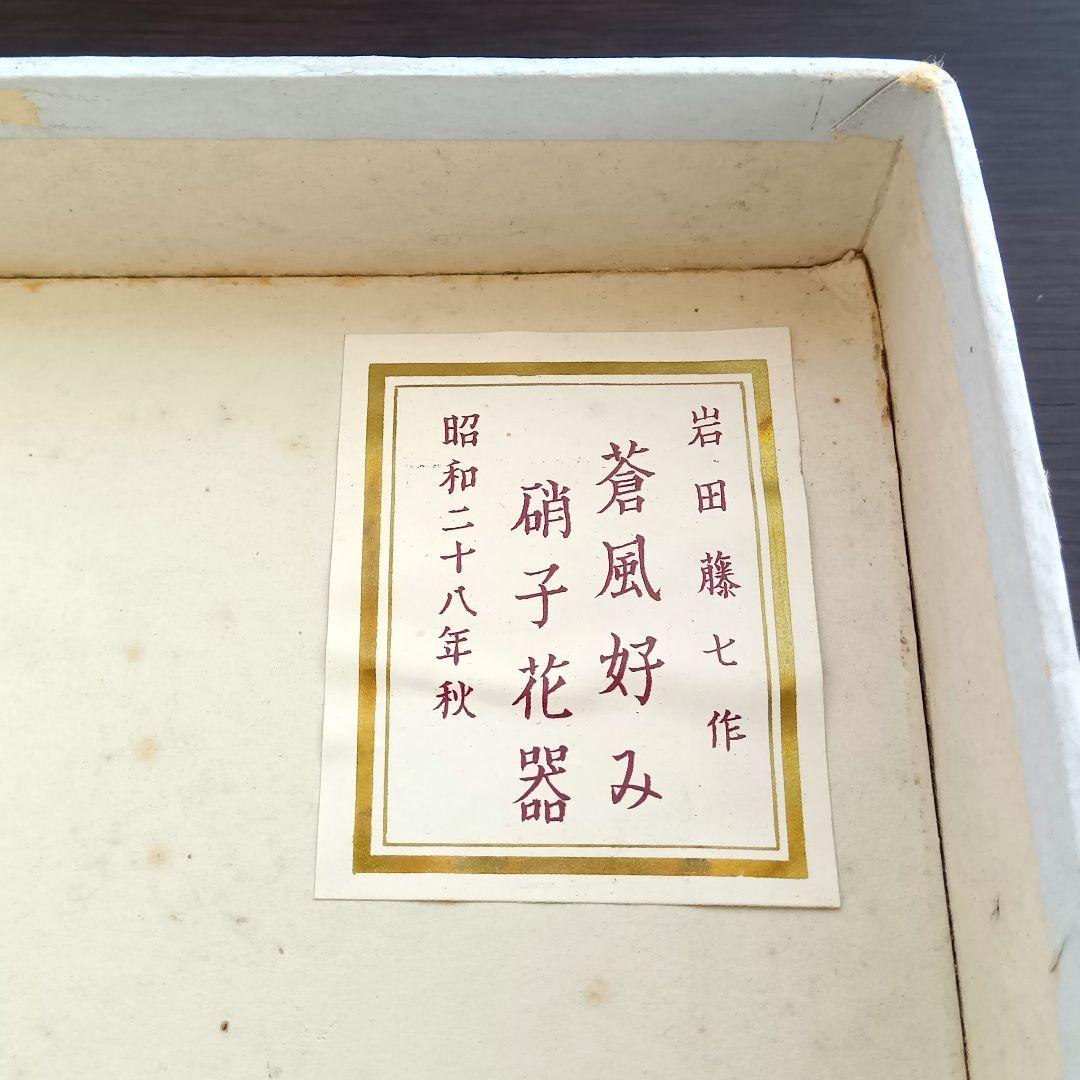 岩田藤七作
蒼風好み
硝子花器
昭和二十八年秋